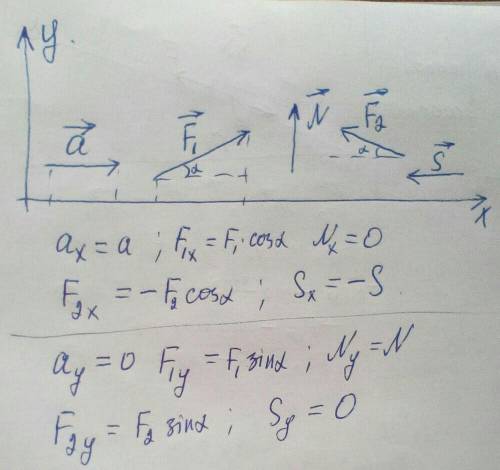 y.
a⃗ F⃗₁ α N⃗ F⃗₂ α S⃗
x
aₓ = a ; F₁ₓ = F₁·cosα Nₓ = 0
F₂ₓ = −F₂cosα ; Sₓ = −S
a_y = 0 F₁y = F₁sinα ; N_y = N
F₂y = F₂ sinα ; S_y = 0